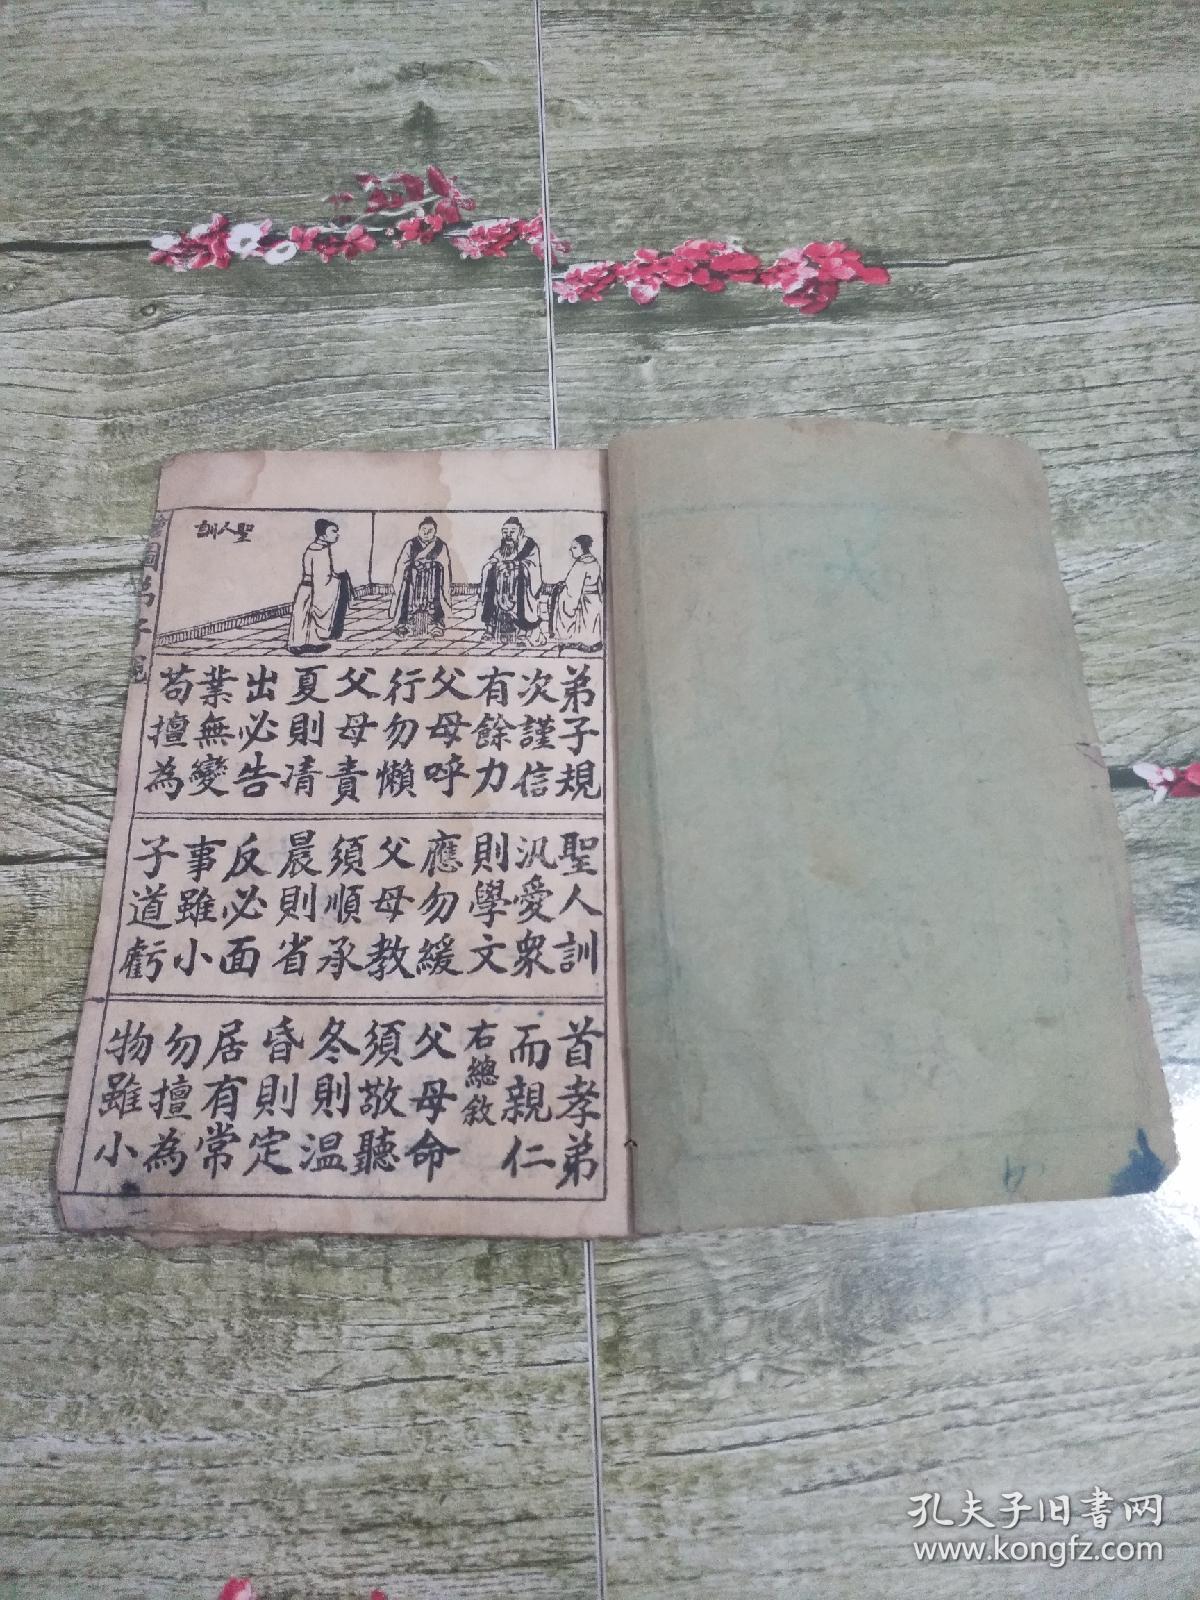 聖人訓
弟子規
次謹信
有餘力
父母呼
行勿懶
父母責
夏則凊
出必告
業無變
苟擅為
聖人訓
汎愛衆
則學文
應勿緩
父母教
須順承
晨則省
反必面
事雖小
子道虧
首孝弟
而親仁
右總敘
父母命
須敬聽
冬則温
昏則定
居有常
勿擅為
物雖小
孔夫子旧书网
www.kongfz.com